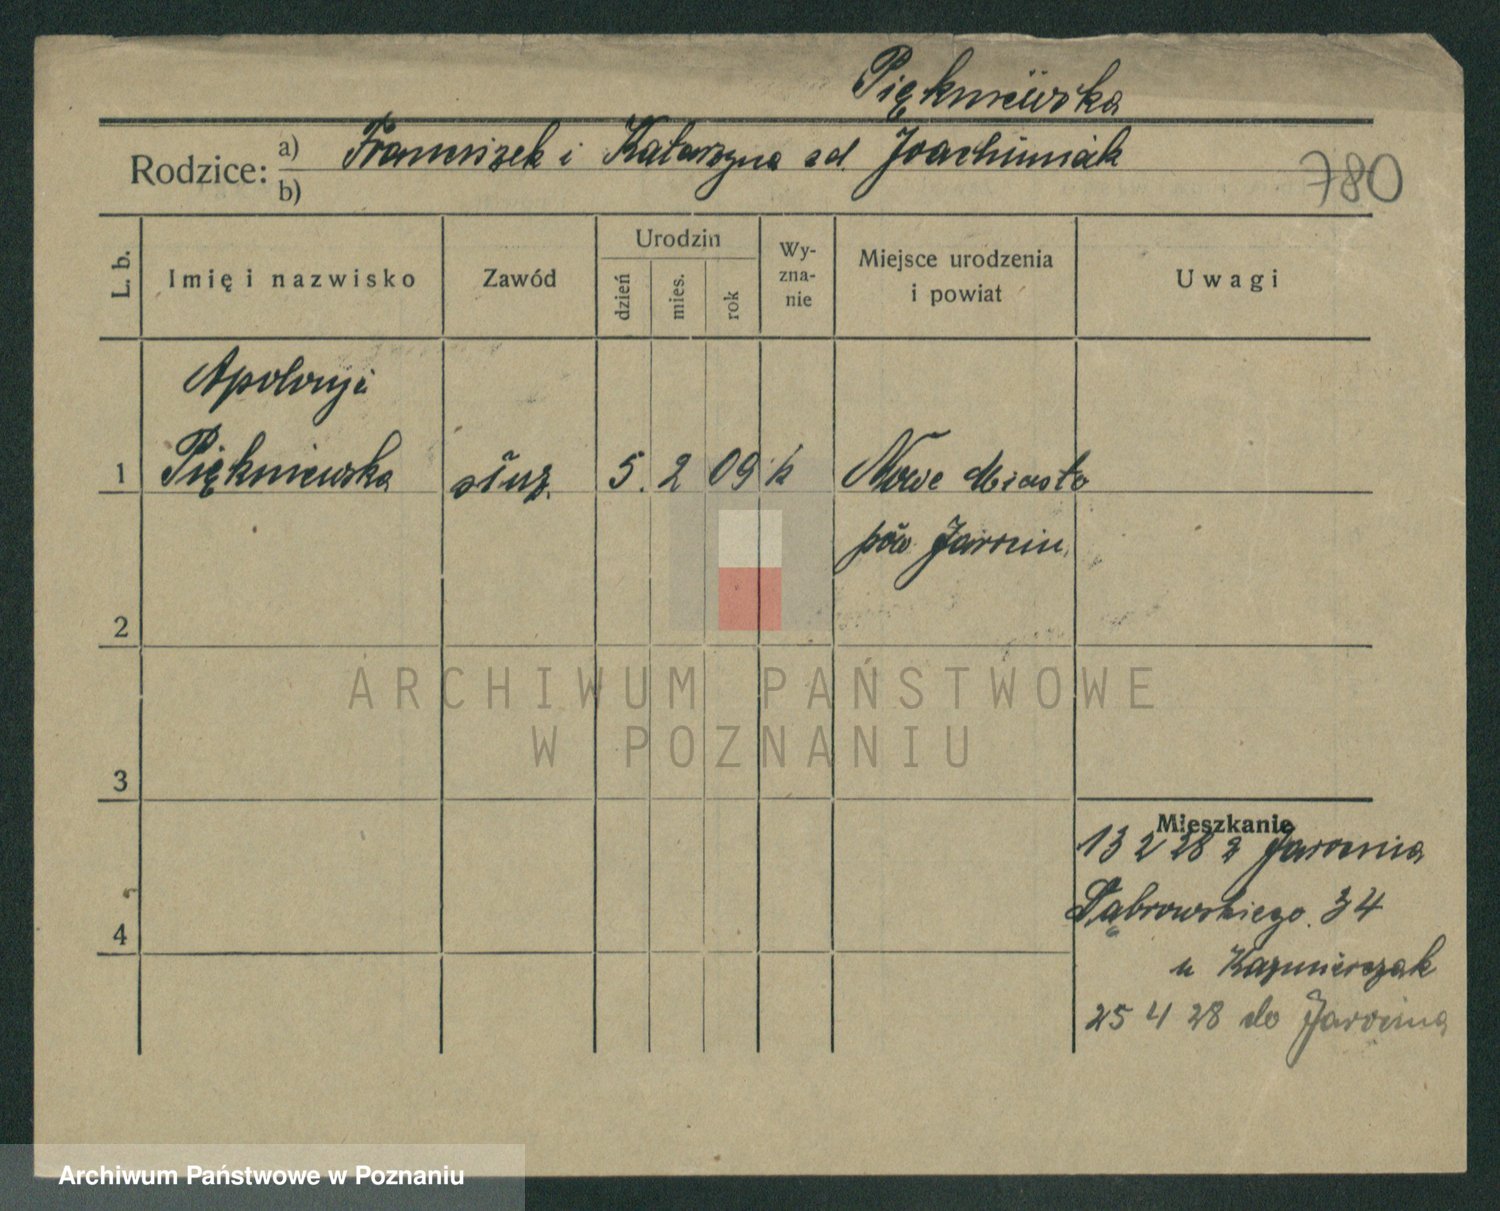 Piękniewska
Rodzice: a) Franciszek i Katarzyna zd. Joachimiak
b)
780
L. b. Imię i nazwisko Zawód Urodzin dzień mies. rok Wyznanie Miejsce urodzenia i powiat Uwagi
Apolonja
1 Piękniewska służ. 5. 2 09 k Nowe Miasto
pow. Jarocin.
2
ARCHIWUM PAŃSTWOWE
W POZNANIU
3
Mieszkanie
13 2 28 z Jarocina
4 Dąbrowskiego. 34
u Kazmierczak
25 4 28 do Jarocina
Archiwum Państwowe w Poznaniu